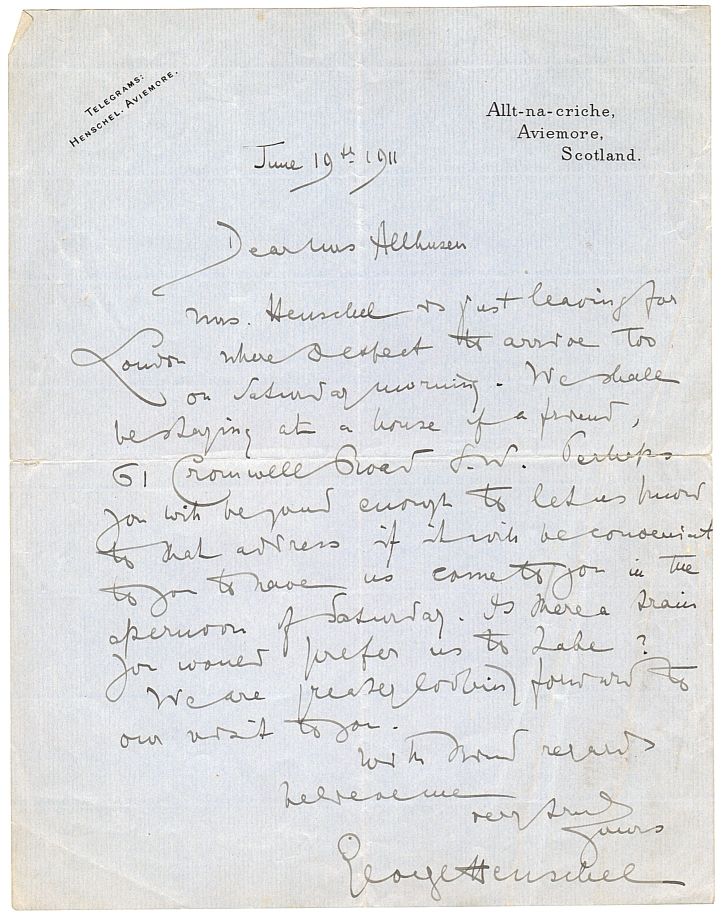 TELEGRAMS:
HENSCHEL. AVIEMORE.
Allt-na-criche,
Aviemore,
Scotland.
June 19th 1911
Dear Mrs Allhusen
Mrs. Henschel is just leaving for
London where I expect to arrive too
on Saturday morning. We shall
be staying at a house of a friend,
61 Cromwell Road S.W. Perhaps
you will be good enough to let us know
to that address if it will be convenient
to you to have us come to you in the
afternoon of Saturday. Is there a train
you would prefer us to take?
We are greatly looking forward to
our visit to you.
With kind regards
believe me
very truly
yours
George Henschel